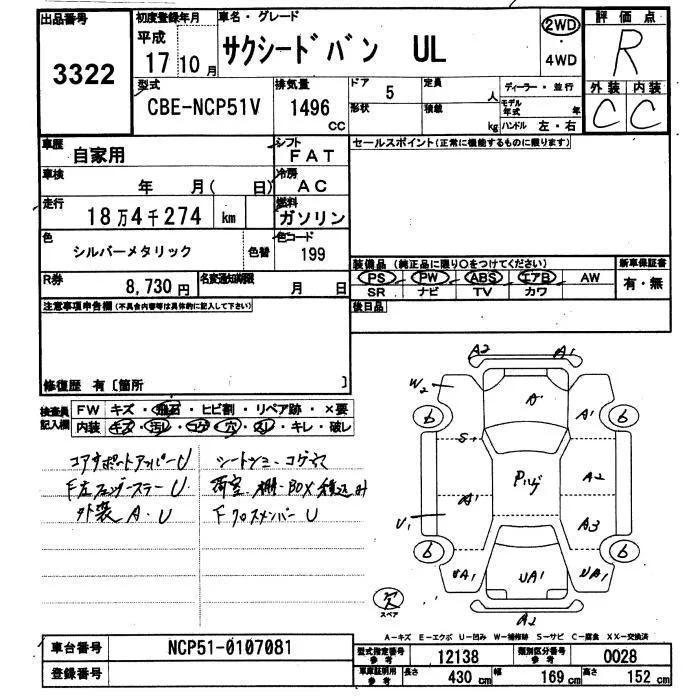 出品番号 3322
初度登録年月 平成 17 10 月
車名・グレード サクシードバン UL
2WD ・ 4WD
評価点 R
外装 内装 C C
型式 CBE-NCP51V
排気量 1496 CC
ドア 5
定員 人
形状
積載 kg
ディーラー・並行
モデル年式 年
ハンドル 左・右
車歴 自家用
シフト FAT
セールスポイント(正常に機能するものに限ります)
車検 年 月( 日)
冷房 AC
走行 18万4千274 km
燃料 ガソリン
色 シルバーメタリック
色替
色コード 199
R券 8,730円
名変通知期限 月 日
装備品 (純正品に限り○をつけてください)
新車保証書 有・無
PS PW ABS エアB AW
SR ナビ TV カワ
後日品
注意事項申告欄(不具合内容等は具体的に記入して下さい)
修復歴 有〔箇所 〕
検査員記入欄
FW キズ・飛石・ヒビ割・リペア跡・×要
内装 キズ・汚レ・コゲ・穴・スレ・キレ・破レ
コアサポートアッパーU
シートシミ・コゲ穴
外装 A・U
FクロスメンバーU
A2 A1
W2 A1 A1
S1 A2
A1 A3
U1
UA1 UA1 UA1
A2
6 6 6 6
スペア
A-キズ E-エクボ U-凹み W-補修跡 S-サビ C-腐食 XX-交換済
車台番号 NCP51-0107081
登録番号
型式指定番号 参考 12138
類別区分番号 参考 0028
車庫証明用 参考 長さ 430 cm 幅 169 cm 高さ 152 cm